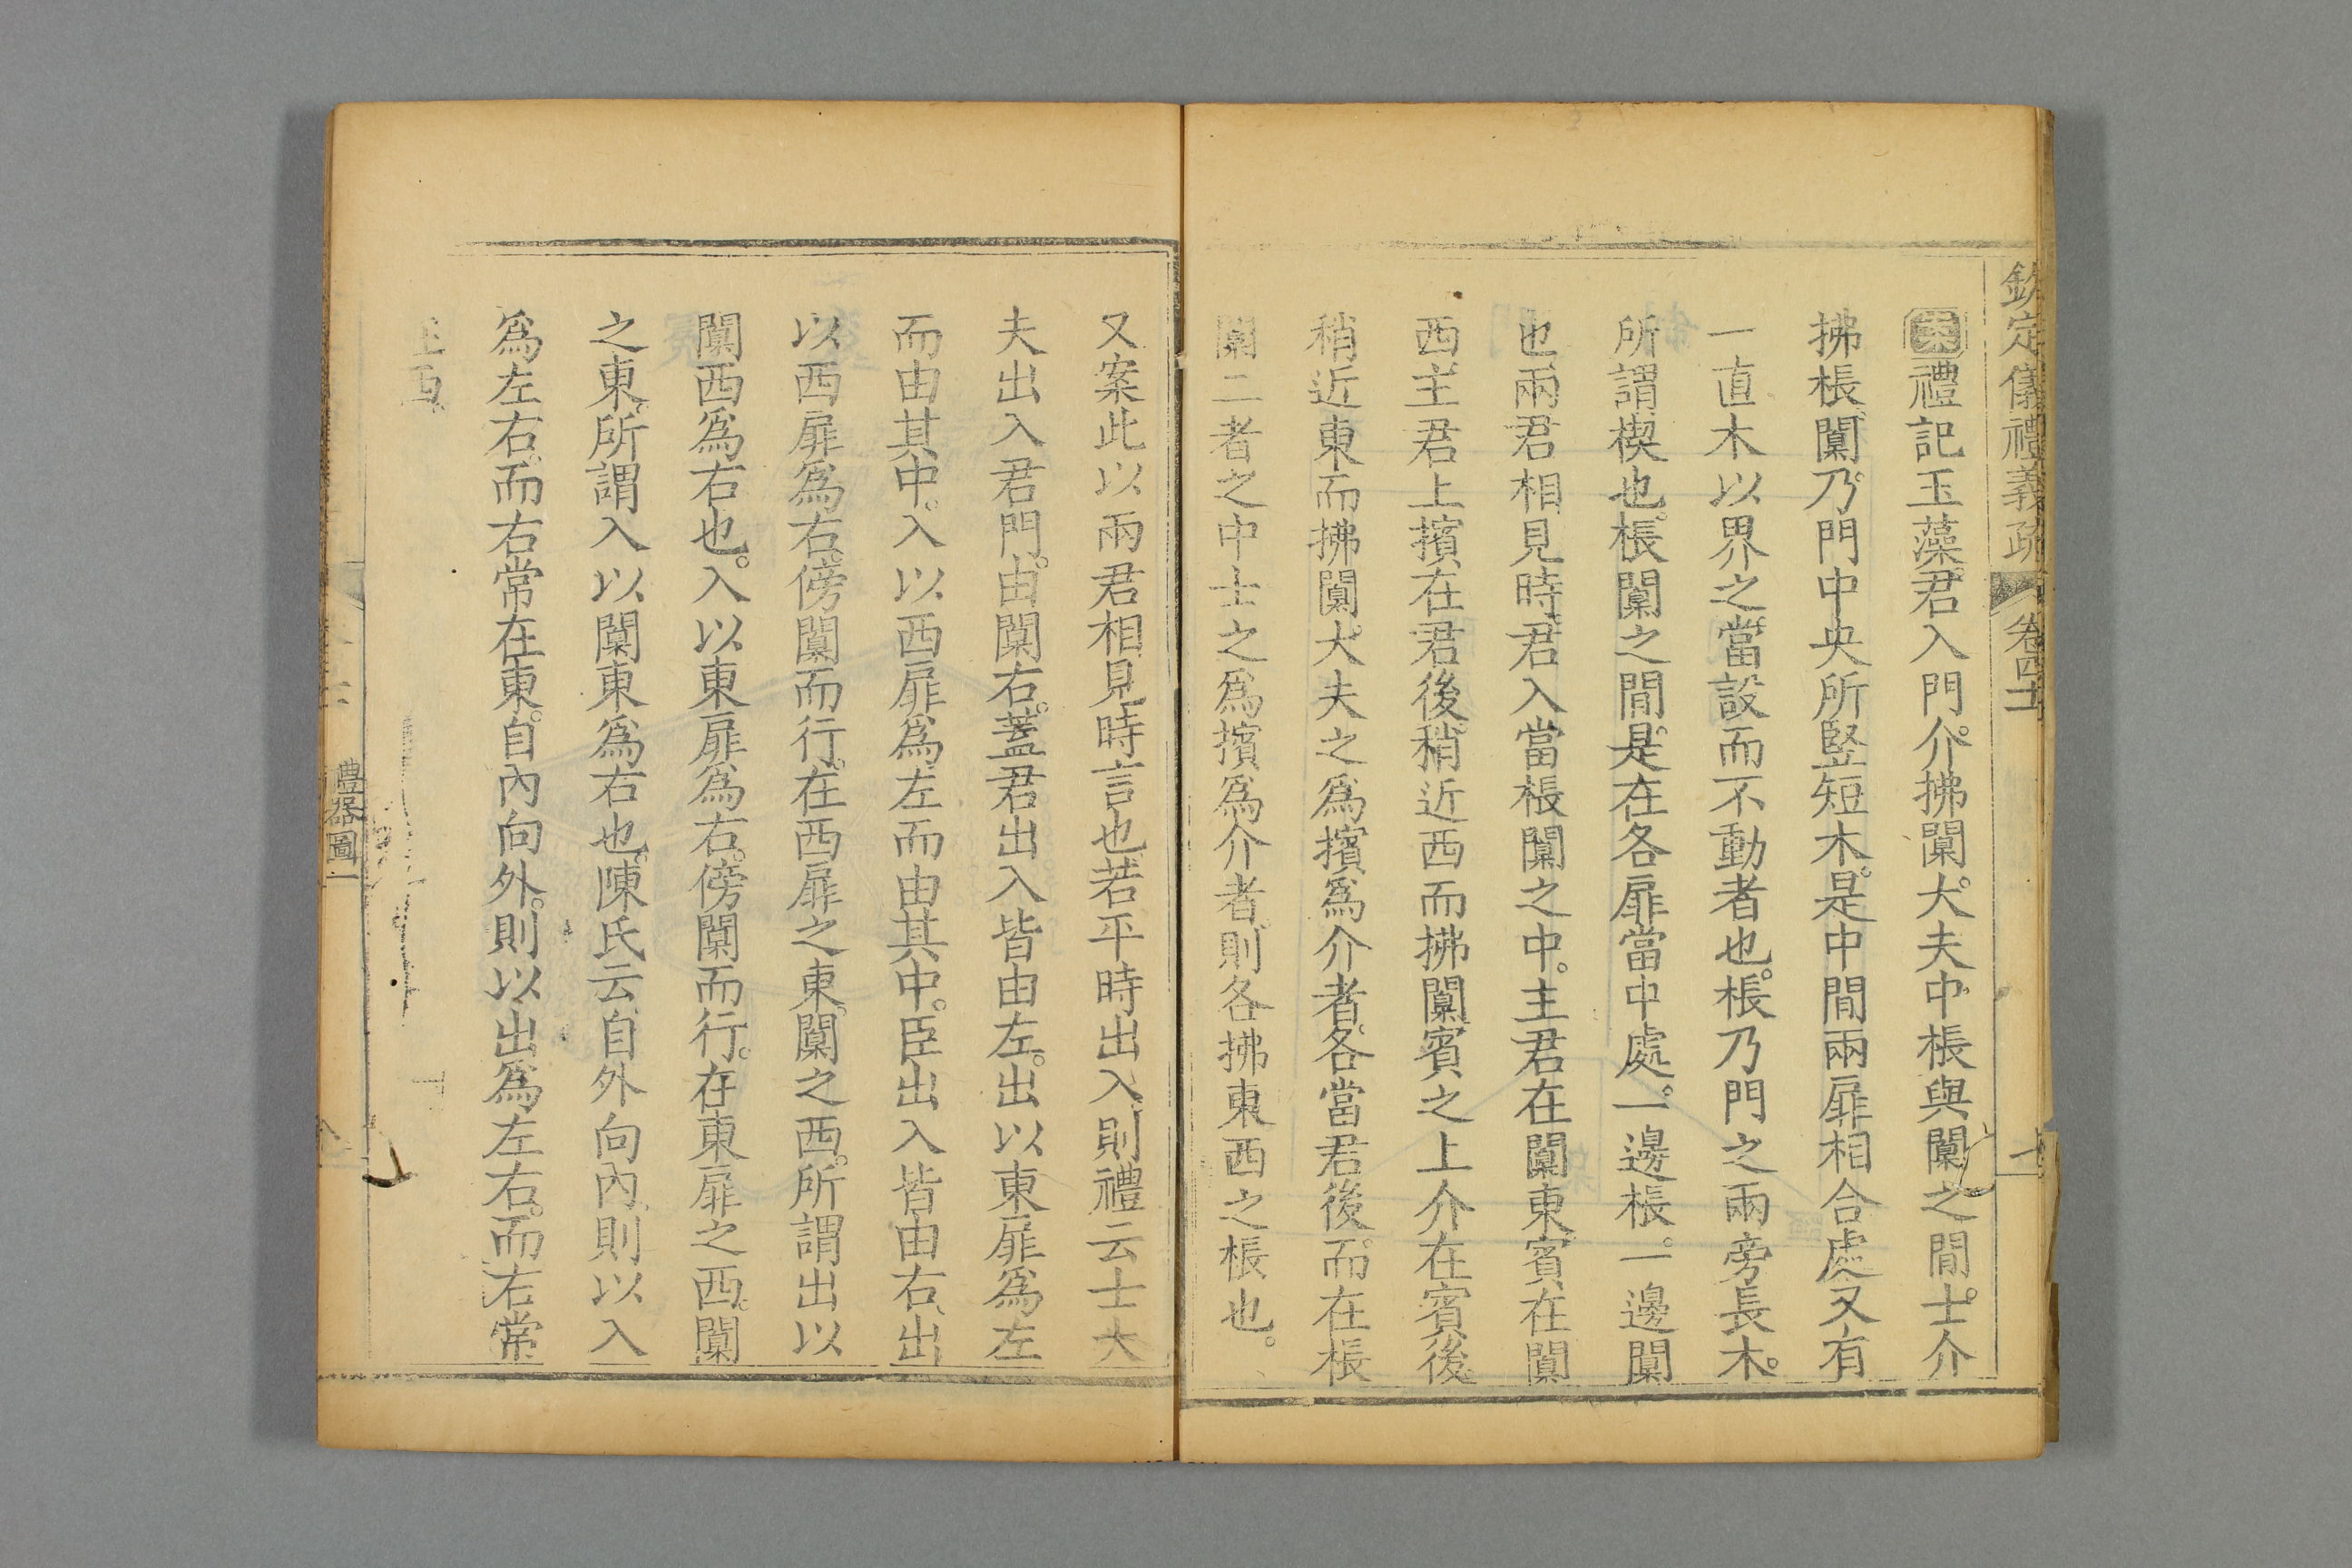 欽定儀禮義疏 卷四十
案禮記玉藻君入門介拂闑大夫中棖與闑之間士介
拂棖闑乃門中央所豎短木是中間兩扉相合處又有
一直木以界之當設而不動者也棖乃門之兩旁長木
所謂楔也棖闑之間是在各扉當中處一邊棖一邊闑
也兩君相見時君入當棖闑之中主君在闑東賓在闑
西主君上擯在君後稍近西而拂闑賓之上介在賓後
稍近東而拂闑大夫之爲擯爲介者各當君後而在棖
闑二者之中士之爲擯爲介者則各拂東西之棖也
又案此以兩君相見時言也若平時出入則禮云士大
夫出入君門由闑右蓋君出入皆由左出以東扉爲左
而由其中入以西扉爲左而由其中臣出入皆由右出
以西扉爲右傍闑而行在西扉之東闑之西所謂出以
闑西爲右也入以東扉爲右傍闑而行在東扉之西闑
之東所謂入以闑東爲右也陳氏云自外向內則以入
爲左右而右常在東自內向外則以出爲左右而右常
在西
禮器圖一